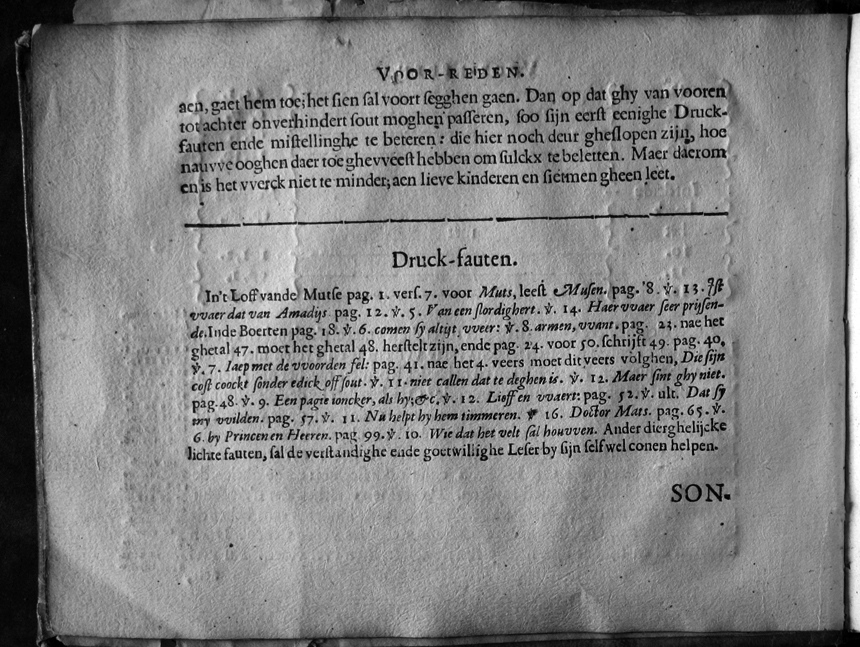 VOOR-REDEN.
aen, gaet hem toe; het sien sal voort segghen gaen. Dan op dat ghy van vooren
tot achter onverhindert sout moghen passeren, soo sijn eerst eenighe Druck-
fauten ende mistellinghe te beteren: die hier noch deur gheslopen zijn, hoe
nauvve ooghen daer toe ghevveest hebben om sulckx te beletten. Maer daerom
en is het vverck niet te minder; aen lieve kinderen en sietmen gheen leet.
Druck-fauten.
In't Loff vande Mutse pag. 1. vers. 7. voor Muts, leest Musen. pag. 8. ℣. 13. Ist
vvaer dat van Amadijs pag. 12. ℣. 5. Van een slordighert. ℣. 14. Haer vvaer seer prijsen-
de. Inde Boerten pag. 18. ℣. 6. comen sy altijt vveer: ℣. 8. armen, vvant. pag. 23. nae het
ghetal 47. moet het ghetal 48. herstelt zijn, ende pag. 24. voor 50. schrijft 49. pag. 40.
℣. 7. laep met de vvoorden fel: pag. 41. nae het 4. veers moet dit veers volghen, Die sijn
cost coockt sonder edick off sout. ℣. 11. niet callen dat te deghen is. ℣. 12. Maer sint ghy niet.
pag. 48. ℣. 9. Een pagie ioncker, als hy; &c. ℣. 12. Lieff en vvaert: pag. 52. ℣. ult. Dat sy
my vvilden. pag. 57. ℣. 11. Nu helpt hy hem timmeren. ℣ 16. Doctor Mats. pag. 65. ℣.
6. by Princen en Heeren. pag. 99. ℣. 10. Wie dat het velt sal houvven. Ander dierghelijcke
lichte fauten, sal de verstandighe ende goetwillighe Leser by sijn self wel conen helpen.
SON-